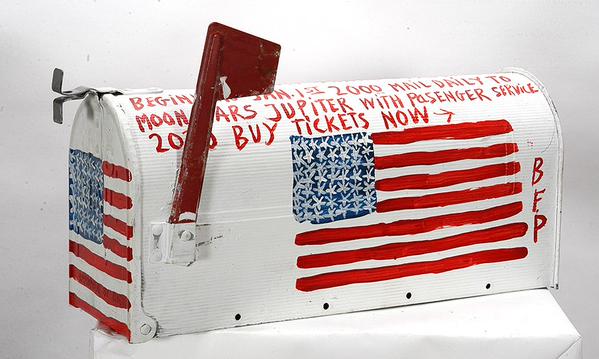 JAN. 1ST 2000 MAIL DAILY TO
MOON MARS JUPITER WITH PASENGER SERVICE
BUY TICKETS NOW →
BFP